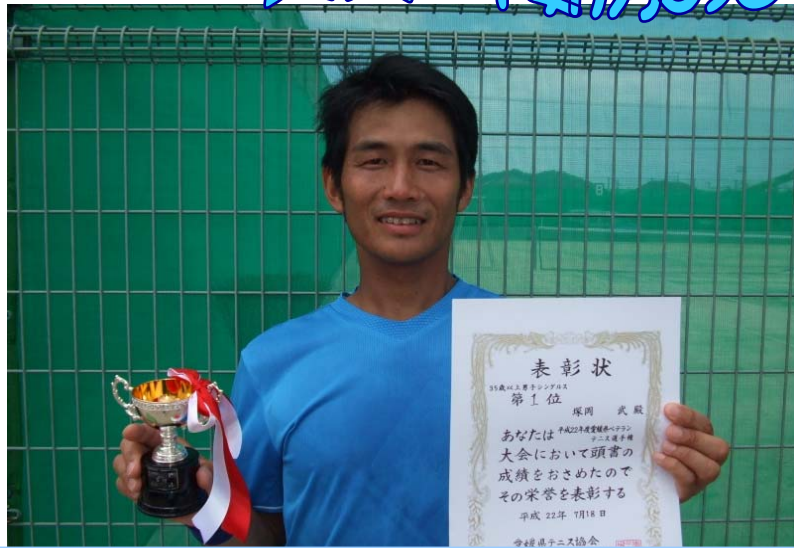 表彰状
35歳以上男子シングルス
第1位
塚岡 武 殿
あなたは 平成22年度愛媛県ベテラン
テニス選手権
大会において頭書の
成績をおさめたので
その栄誉を表彰する
平成 22年 7月18日
愛媛県テニス協会